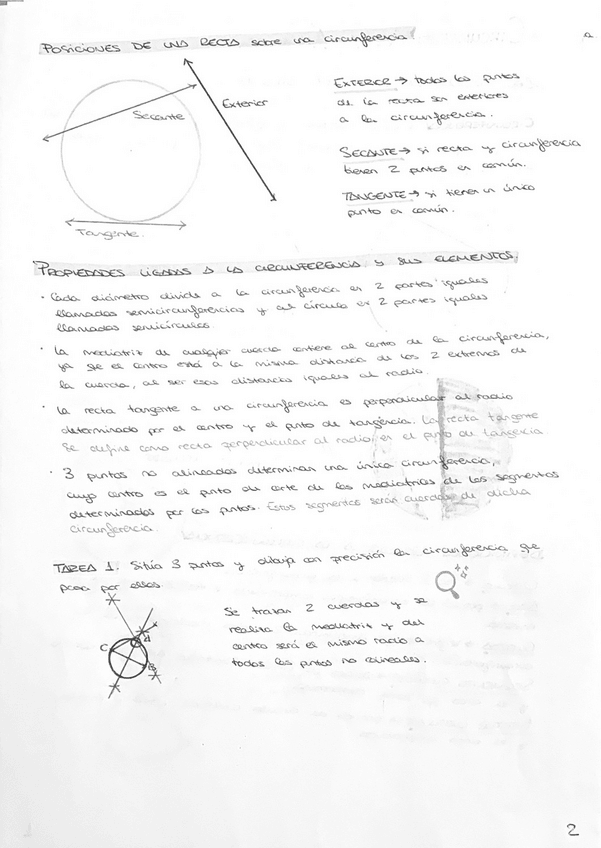 POSICIONES DE UNA RECTA sobre una circunferencia.
Secante
Exterior
Tangente.
EXTERIOR → todos los puntos
de la recta son exteriores
a la circunferencia.
SECANTE → si recta y circunferencia
tienen 2 puntos en común.
TANGENTE → si tienen un único
punto en común.
PROPIEDADES LIGADAS A LA CIRCUNFERENCIA y SUS ELEMENTOS.
· Cada diámetro divide a la circunferencia en 2 partes iguales
llamadas semicircunferencias y al círculo en 2 partes iguales
llamadas semicírculos.
· La mediatriz de cualquier cuerda contiene al centro de la circunferencia,
ya que el centro está a la misma distancia de los 2 extremos de
la cuerda, al ser esas distancias iguales al radio.
· La recta tangente a una circunferencia es perpendicular al radio
determinado por el centro y el punto de tangencia. La recta tangente
se define como recta perpendicular al radio en el punto de tangencia
· 3 puntos no alineados determinan una única circunferencia,
cuyo centro es el punto de corte de las mediatrices de los segmentos
determinados por los puntos. Estos segmentos serán cuerdas de dicha
circunferencia.
TAREA 1. Sitúa 3 puntos y dibuja con precisión la circunferencia que
pasa por ellos.
A
C
B
Se trazan 2 cuerdas y se
realiza la mediatriz y del
centro será el mismo radio a
todos los puntos no colineales.
2